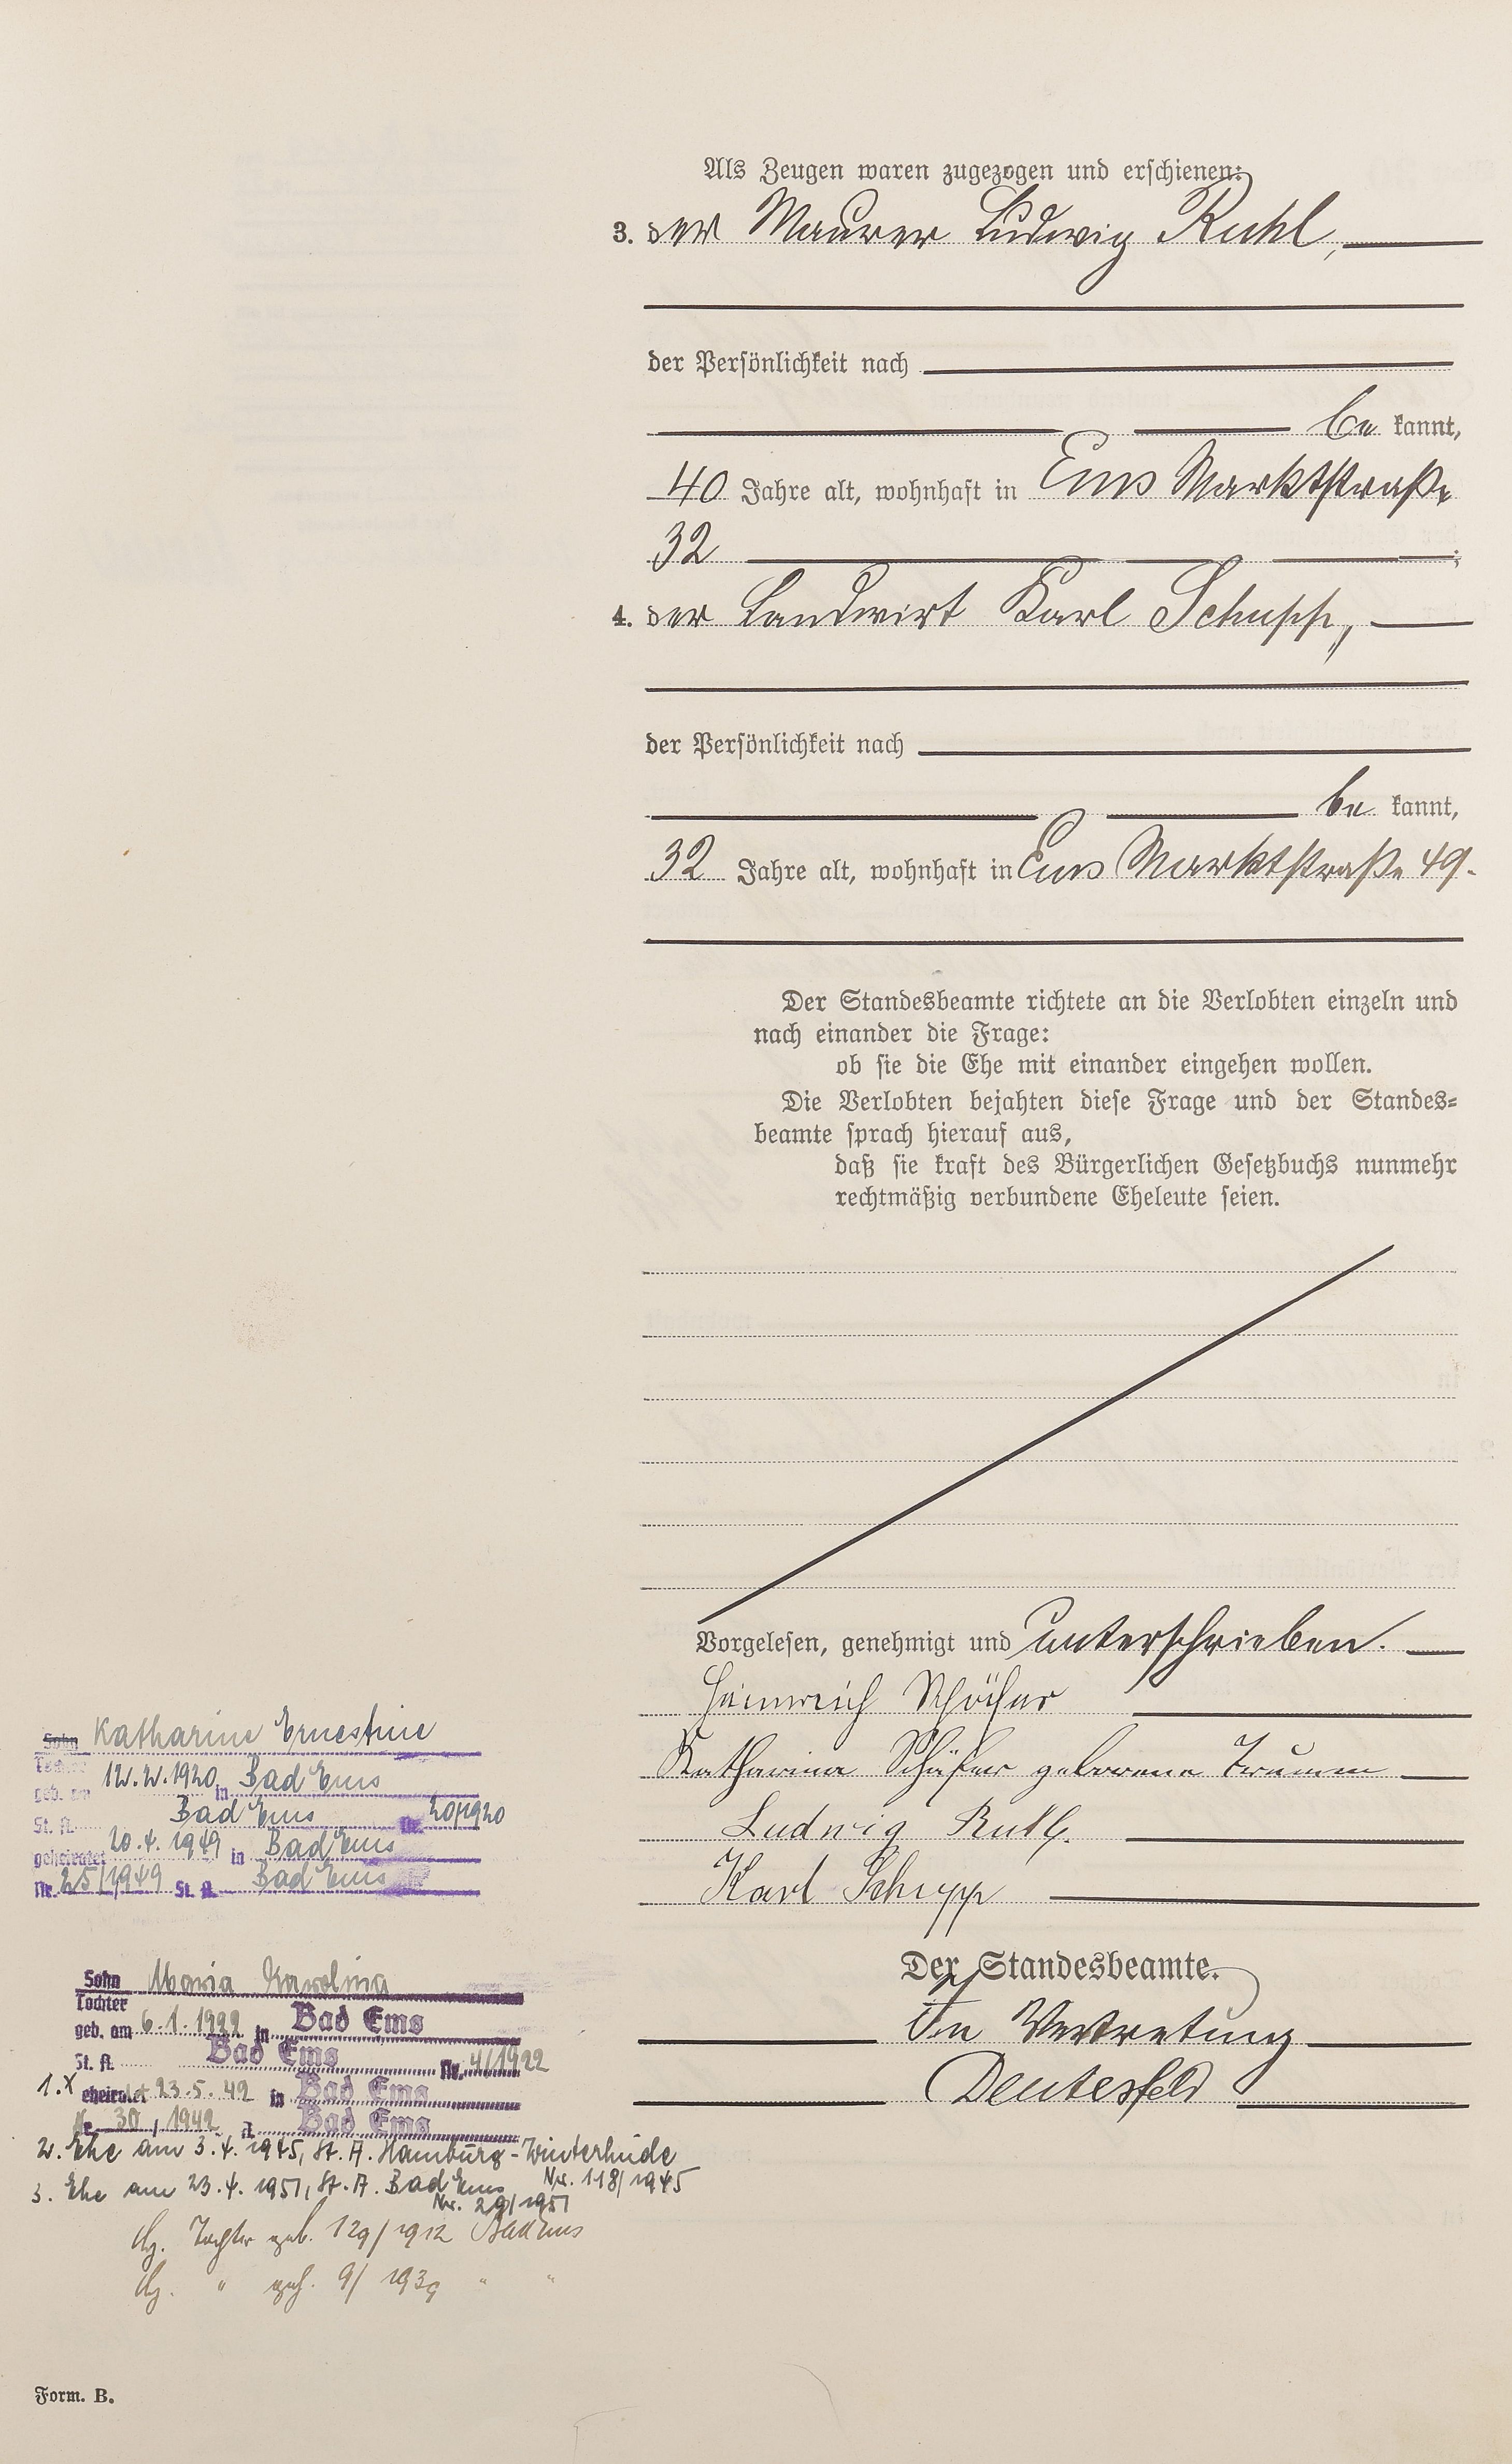 Als Zeugen waren zugezogen und erschienen:
3. der Maurer Ludwig Ruhl,
der Persönlichkeit nach
be kannt,
40 Jahre alt, wohnhaft in Ems Marktstraße
32 ;
4. der Landwirt Karl Schupp,
der Persönlichkeit nach
be kannt,
32 Jahre alt, wohnhaft in Ems Marktstraße 49.
Der Standesbeamte richtete an die Verlobten einzeln und
nach einander die Frage:
ob sie die Ehe mit einander eingehen wollen.
Die Verlobten bejahten diese Frage und der Standes=
beamte sprach hierauf aus,
daß sie kraft des Bürgerlichen Gesetzbuchs nunmehr
rechtmäßig verbundene Eheleute seien.
Vorgelesen, genehmigt und unterschrieben.
Heinrich Schäfer
Katharina Schäfer geborene Trumm
Ludwig Ruhl.
Karl Schupp
Der Standesbeamte.
In Vertretung
Deutesfeld
Sohn Katharine Ernestine
Tochter
geb. am 12.2.1920 in Bad Ems
St. A. Bad Ems Nr. 20/1920
geheiratet 20.4.1949 in Bad Ems
Nr. 25/1949 St. A. Bad Ems
Sohn Maria Karolina
Tochter
geb. am 6.1.1922 in Bad Ems
St. A. Bad Ems Nr. 4/1922
1.X eheiratet 23.5.42 in Bad Ems
Nr. 30/1942 A. Bad Ems
2. Ehe am 3.4.1945, St. A. Hamburg-Winterhude
Nr. 118/1945
3. Ehe am 23.4.1951, St. A. Bad Ems
Nr. 29/1951
Tochter geb. 129/1912 Bad Ems
" geh. 9/1939 " "
Form. B.